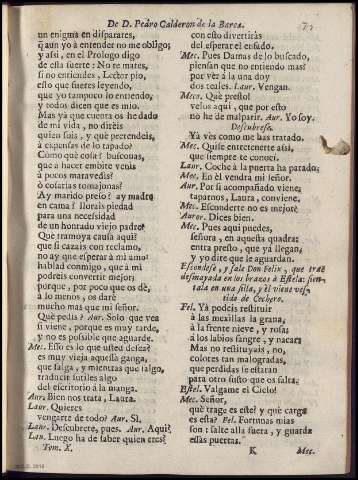 De D. Pedro Calderon de la Barca.
un enigma en disparates,
q̃ aun yo à entender no me obligo;
y assi, en el Prologo digo
de esta suerte: No te mates,
si no entiendes, Lector pio,
esto que fueres leyendo,
que yo tampoco lo entiendo,
y todos dicen que es mio.
Mas yà que cuenta os he dado
de mi vida, no dirèis
quien sois, y què pretendeis,
à expensas de lo tapado?
Como què cosa? busconas,
que à hacer embite venis
à pocos maravedis?
ò cosarias tomajonas?
Ay marido preso? ay madre
en cama? llorais piedad
para una necesidad
de un honrado viejo padre?
Què tramoya causa aqui?
que si cazais con reclamo,
no ay que esperar à mi amo:
hablad conmigo, que à mi
podreis convertir mejor;
porque, por poco que os dè,
à lo menos, os darè
mucho mas que mi señor.
Què pedis? Aur. Solo que vea
si viene, porque es muy tarde,
y no es possible que aguarde.
Mec. Esso es lo que usted desea?
es muy vieja aquella ganga,
que salga, y mientras que salgo,
traducir sutiles algo
del escritorio à la manga.
Aur. Bien nos trata, Laura.
Laur. Quieres
vengarte de todo? Aur. Sì,
Laur. Descubrete, pues. Aur. Aqui?
Lau. Luego ha de saber quien eres?
Tom. X.
con esto divertiràs
del esperar el enfado.
Mec. Pues Damas de lo buscado,
piensan que no entiendo mas?
por vèr à la una doy
dos reales. Laur. Vengan.
Meco. Què presto!
velos aqui, que por esto
no he de malparir. Aur. Yo soy.
Descubrese.
Yà vès como me has tratado.
Mec. Quise entretenerte assi,
que siempre te conocì.
Laur. Coche à la puerta ha parado;
Mec. En èl vendra mi señor.
Aur. Por si acompañado viene,
taparnos, Laura, conviene.
Mec. Esconderte no es mejor?
Auror. Dices bien.
Mec. Pues aqui puedes,
señora, en aquesta quadra;
entra presto, que yà llegan,
y yo dirè que le aguardan.
Escondese, y sale Don Felix, que trae
desmayada en los brazos à Estela: sientala
en una silla, y èl viene vestido
de Cochero.
Fel. Yà podeis restituir
à las mexillas la grana,
à la frente nieve, y rosa;
à los labios sangre, y nacar:
Mas no restituyais, no,
colores tan malogradas,
que perdidas se estaràn
para otro susto que os salta.
Estel. Valgame el Cielo!
Mec. Señor,
què trage es este? y què carga
es esta? Fel. Fortunas mias
son: salte alla fuera, y guarda
essas puertas.
K
Mec.